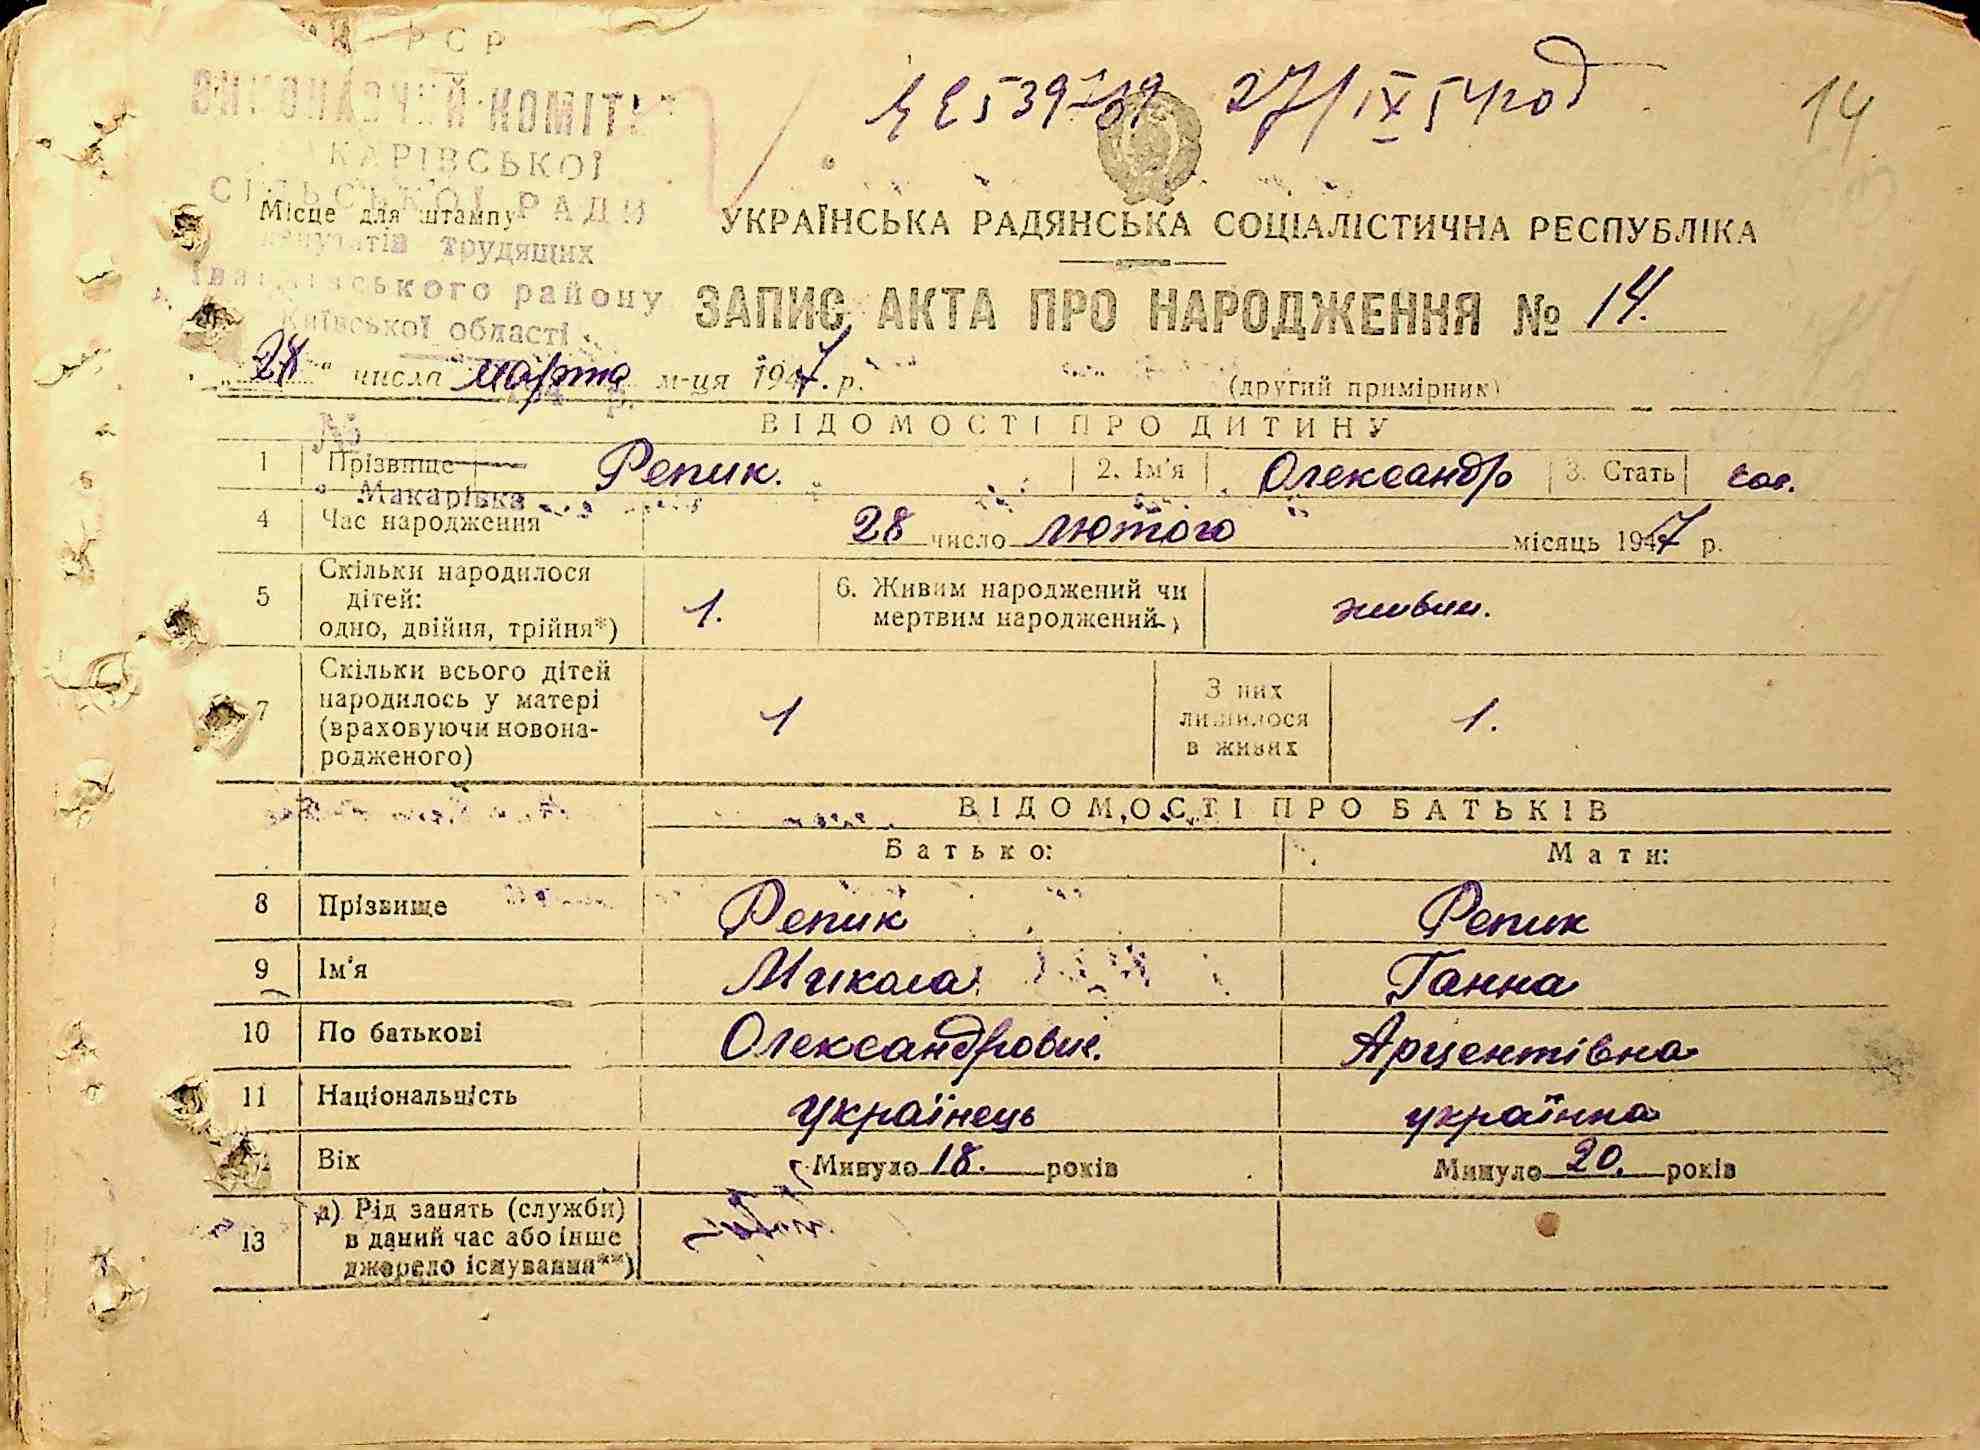 РСР
ВИКОНАВЧИЙ КОМІТЕТ
МАКАРІВСЬКОЇ
СІЛЬСЬКОЇ РАДИ
депутатів трудящих
Іванківського району
Київської області
№
Макарівка
27/IX 54 год
14
Місце для штампу
УКРАЇНСЬКА РАДЯНСЬКА СОЦІАЛІСТИЧНА РЕСПУБЛІКА
ЗАПИС АКТА ПРО НАРОДЖЕННЯ № 14.
„28“ числа марта м-ця 1947. р.
(другий примірник)
ВІДОМОСТІ ПРО ДИТИНУ
1 Прізвище Репик. 2. Ім'я Олександр 3. Стать чол.
4 Час народження 28 число лютого місяць 1947 р.
5 Скільки народилося
дітей:
одно, двійня, трійня*) 1. 6. Живим народжений чи
мертвим народжений*) живим.
7 Скільки всього дітей
народилось у матері
(враховуючи новона-
родженого) 1 З них
лишилося
в живих 1.
ВІДОМОСТІ ПРО БАТЬКІВ
Батько: Мати:
8 Прізвище Репик Репик
9 Ім'я Микола Ганна
10 По батькові Олександрович. Арцентівна
11 Національність українець українка
12 Вік Минуло 18. років Минуло 20. років
13 а) Рід занять (служби)
в даний час або інше
джерело існування**)